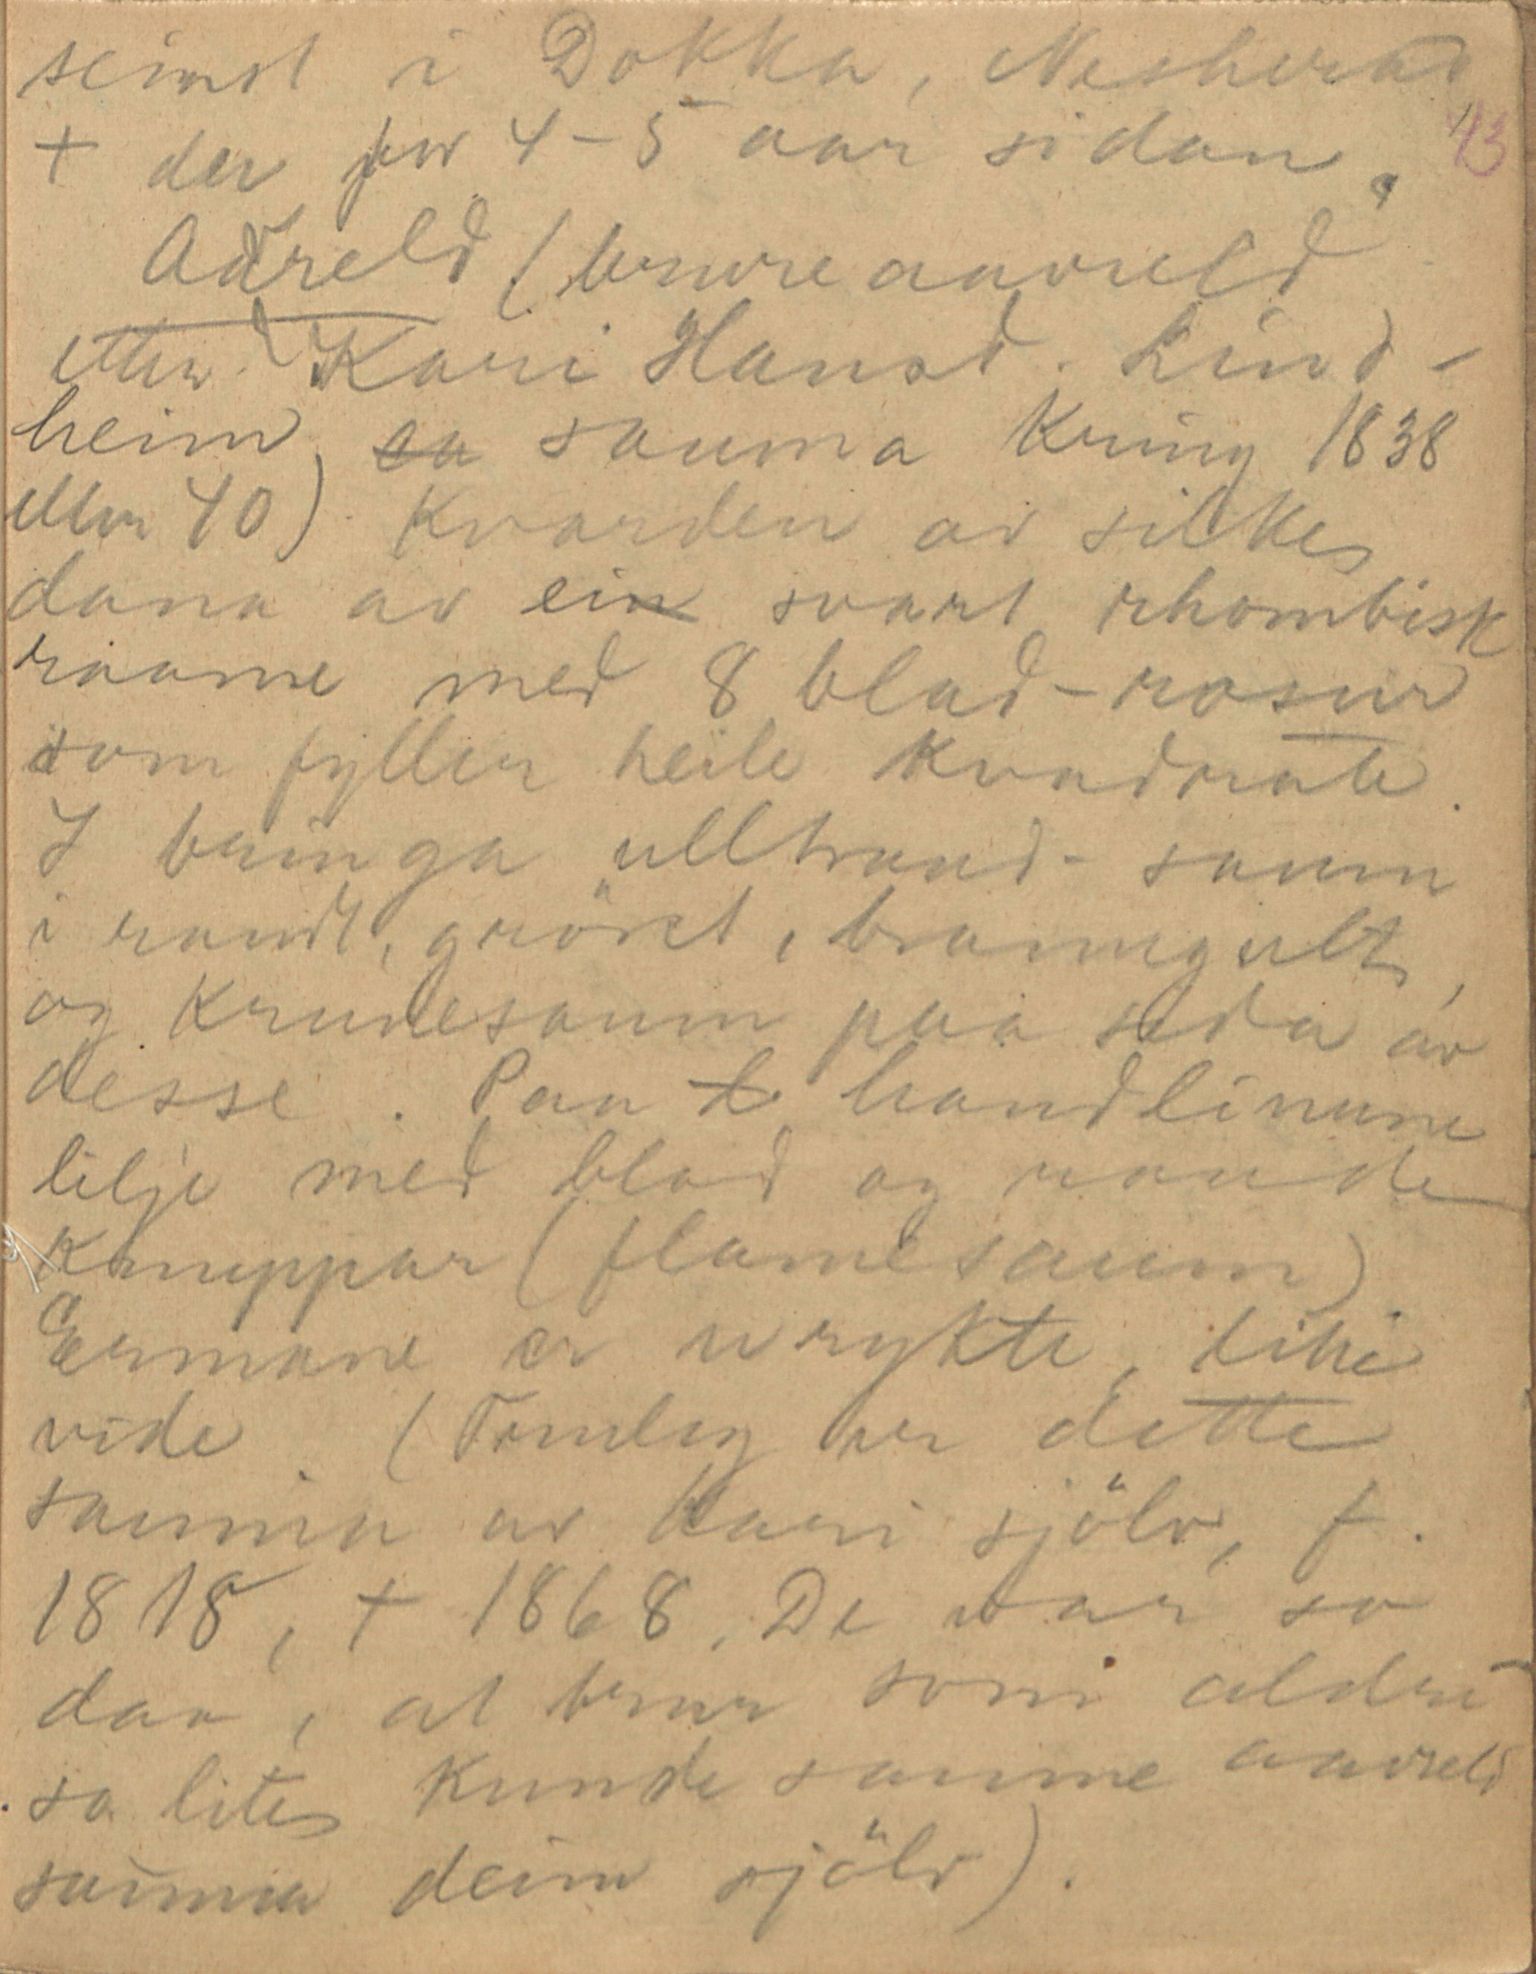 seinst i Dokka, Nesherad
13
+ der for 4-5 aar sidan.
Aareld (brureaavreld
etter Kari Hansd. Lind-
heim, ca sauma kring 1838
eller 40). Kvarden av silke,
dana av ein svart rhombisk
raame med 8 blad-rosur
som fyller heile kvadrate.
I bringa ulltraad-saum
i raudt, grönt, brannegult,
og krunesaum paa sida av
desse. Paa t handlinune
lilje med blad og runde
knuppar (flamesaum)
Ermane er urykte, like
vide. (Truleg er dette
sauma av Kari sjölv, f.
1818, + 1868. De var so
daa, at brur som aldri
so lite kunde saume aavreld
sauma deim sjölv).